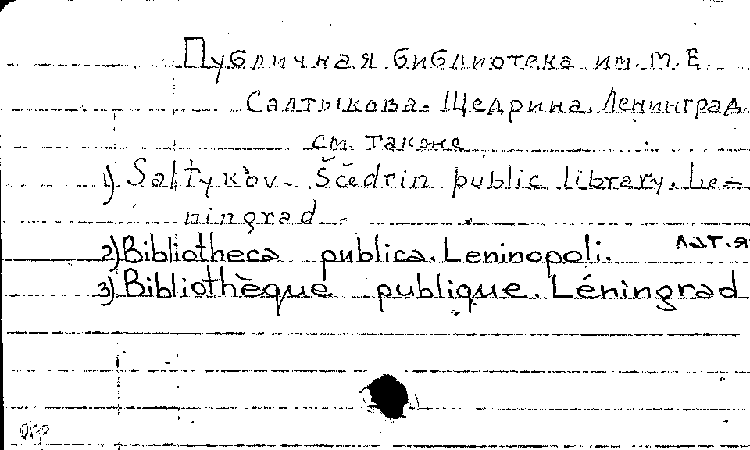 Публичная библиотека им. М. Е.
Салтыкова-Щедрина. Ленинград.
см. также
1) Saltykov-Ščedrin public library. Le-
ningrad
2) Bibliotheca publica. Leninopoli. лат. я
3) Bibliothèque publique. Léningrad